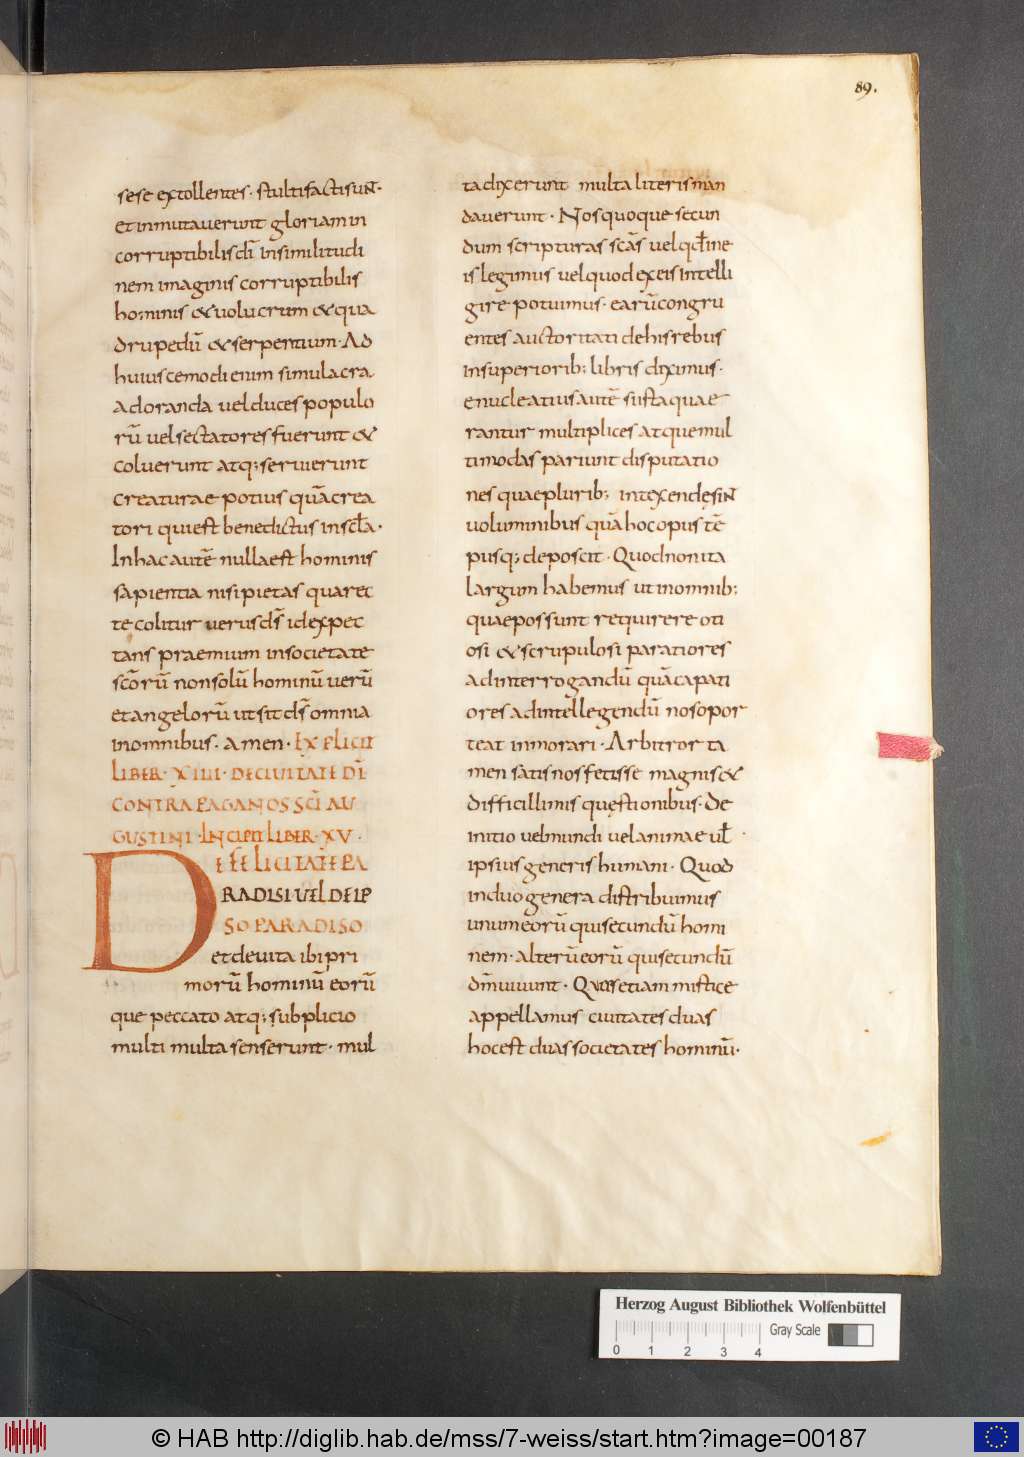 89.
sese extollentes. stulti facti sunt.
et inmutaverunt gloriam in
corruptibilis dī in similitudi
nem imaginis corruptibilis
hominis & volucrum & qua
drupedū & serpentium. Ad
huiuscemodi enim simulacra
adoranda vel duces populo
rū vel sectatores fuerunt &
coluerunt atq; servierunt
creaturae potius quā crea
tori qui est benedictus in sc̄la.
In hac autē nulla est hominis
sapientia nisi pietas qua rec
te colitur verus ds̄ id expec
tans praemium in societate
sc̄orū non solū hominū verū
et angelorū ut sit ds̄ omnia
in omnibus. amen. EXPLICIT
LIBER. XIIII. DE CIVITATE DĪ
CONTRA PAGANOS SC̄I AU
GUSTINI. INCIPIT LIBER. XV.
DE FELICITATE PA
RADISI VEL DE IP
SO PARADISO
et de vita ibi pri
morū hominū eorū
que peccato atq; supplicio
multi multa senserunt. mul
ta dixerunt multa literis man
daverunt. Nos quoque secun
dum scripturas sc̄as vel q̄ de
is legimus vel quod ex eis intelli
gire potuimus. earū congru
entes auctoritati de his rebus
in superiorib; libris diximus.
enucleatius autē si ista quae
rantur multiplices atque mul
timodas pariunt disputatio
nes quae plurib; intexendę sint
voluminibus quā hoc opus tē
pusq; deposcit. Quod non ita
largum habemus ut in omnib;
quae possunt requirere oti
osi & scrupulosi paratiores
ad interrogandū quā capati
ores ad intellegendū nos opor
teat inmorari. Arbitror ta
men satis nos fetisse magnis &
difficillimis quęstionibus. De
initio vel mundi vel animae vl̄
ipsius generis humani. Quod
in duo genera distribuimus
unum eorū qui secundū homi
nem. alterū eorū qui secundū
dm̄ vivunt. Quas etiam mistice
appellamus civitates duas
hoc est duas societates hominū.
Herzog August Bibliothek Wolfenbüttel
Gray Scale
0 1 2 3 4
© HAB http://diglib.hab.de/mss/7-weiss/start.htm?image=00187